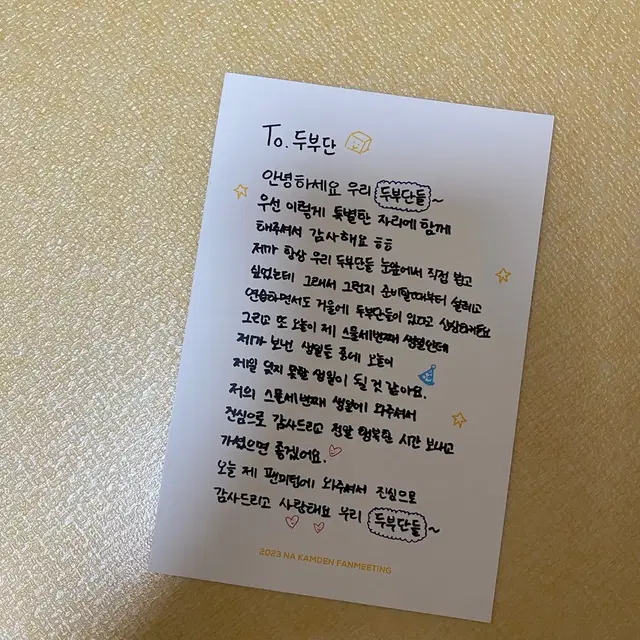 To. 두부단
안녕하세요 우리 두부단들~
우선 이렇게 특별한 자리에 함께
해주셔서 감사해요 ㅎㅎ
제가 항상 우리 두부단들 눈앞에서 직접 뵙고
싶었는데 그래서 그런지 준비할때부터 설레고
연습하면서도 거울에 두부단들이 있다고 상상하며요
그리고 또 오늘이 제 스물세번째 생일인데
제가 보낸 생일들 중에 오늘이
제일 잊지 못할 생일이 될 것 같아요.
저의 스물세번째 생일에 와주셔서
진심으로 감사드리고 정말 행복한 시간 보내고
가셨으면 좋겠어요.
오늘 제 팬미팅에 와주셔서 진심으로
감사드리고 사랑해요 우리 두부단들~
2023 NA KAMDEN FANMEETING